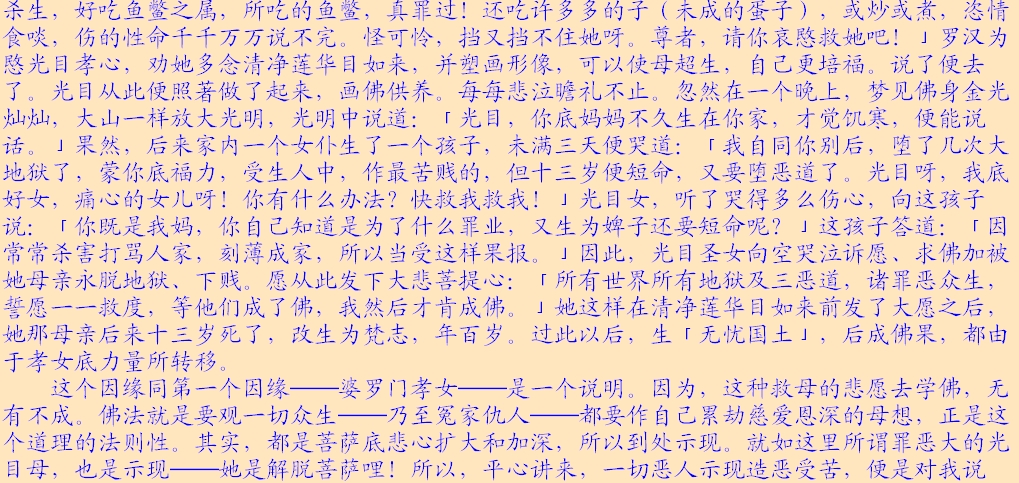 杀生，好吃鱼鳖之属，所吃的鱼鳖，真罪过！还吃许多多的子（未成的蛋子），或炒或煮，恣情
食啖，伤的性命千千万万说不完。怪可怜，挡又挡不住她呀。尊者，请你哀愍救她吧！」罗汉为
愍光目孝心，劝她多念清净莲华目如来，并塑画形像，可以使母超生，自己更培福。说了便去
了。光目从此便照著做了起来，画佛供养。每每悲泣瞻礼不止。忽然在一个晚上，梦见佛身金光
灿灿，大山一样放大光明，光明中说道：「光目，你底妈妈不久生在你家，才觉饥寒，便能说
话。」果然，后来家内一个女仆生了一个孩子，未满三天便哭道：「我自同你别后，堕了几次大
地狱了，蒙你底福力，受生人中，作最苦贱的，但十三岁便短命，又要堕恶道了。光目呀，我底
好女，痛心的女儿呀！你有什么办法？快救我救我！」光目女，听了哭得多么伤心，向这孩子
说：「你既是我妈，你自己知道是为了什么罪业，又生为婢子还要短命呢？」这孩子答道：「因
常常杀害打骂人家，刻薄成家，所以当受这样果报。」因此，光目圣女向空哭泣诉愿、求佛加被
她母亲永脱地狱、下贱。愿从此发下大悲菩提心：「所有世界所有地狱及三恶道，诸罪恶众生，
誓愿一一救度，等他们成了佛，我然后才肯成佛。」她这样在清净莲华目如来前发了大愿之后，
她那母亲后来十三岁死了，改生为梵志，年百岁。过此以后，生「无忧国土」，后成佛果，都由
于孝女底力量所转移。
这个因缘同第一个因缘——婆罗门孝女——是一个说明。因为，这种救母的悲愿去学佛，无
有不成。佛法就是要观一切众生——乃至冤家仇人——都要作自己累劫慈爱恩深的母想，正是这
个道理的法则性。其实，都是菩萨底悲心扩大和加深，所以到处示现。就如这里所谓罪恶大的光
目母，也是示现——她是解脱菩萨哩！所以，平心讲来，一切恶人示现造恶受苦，便是对我说